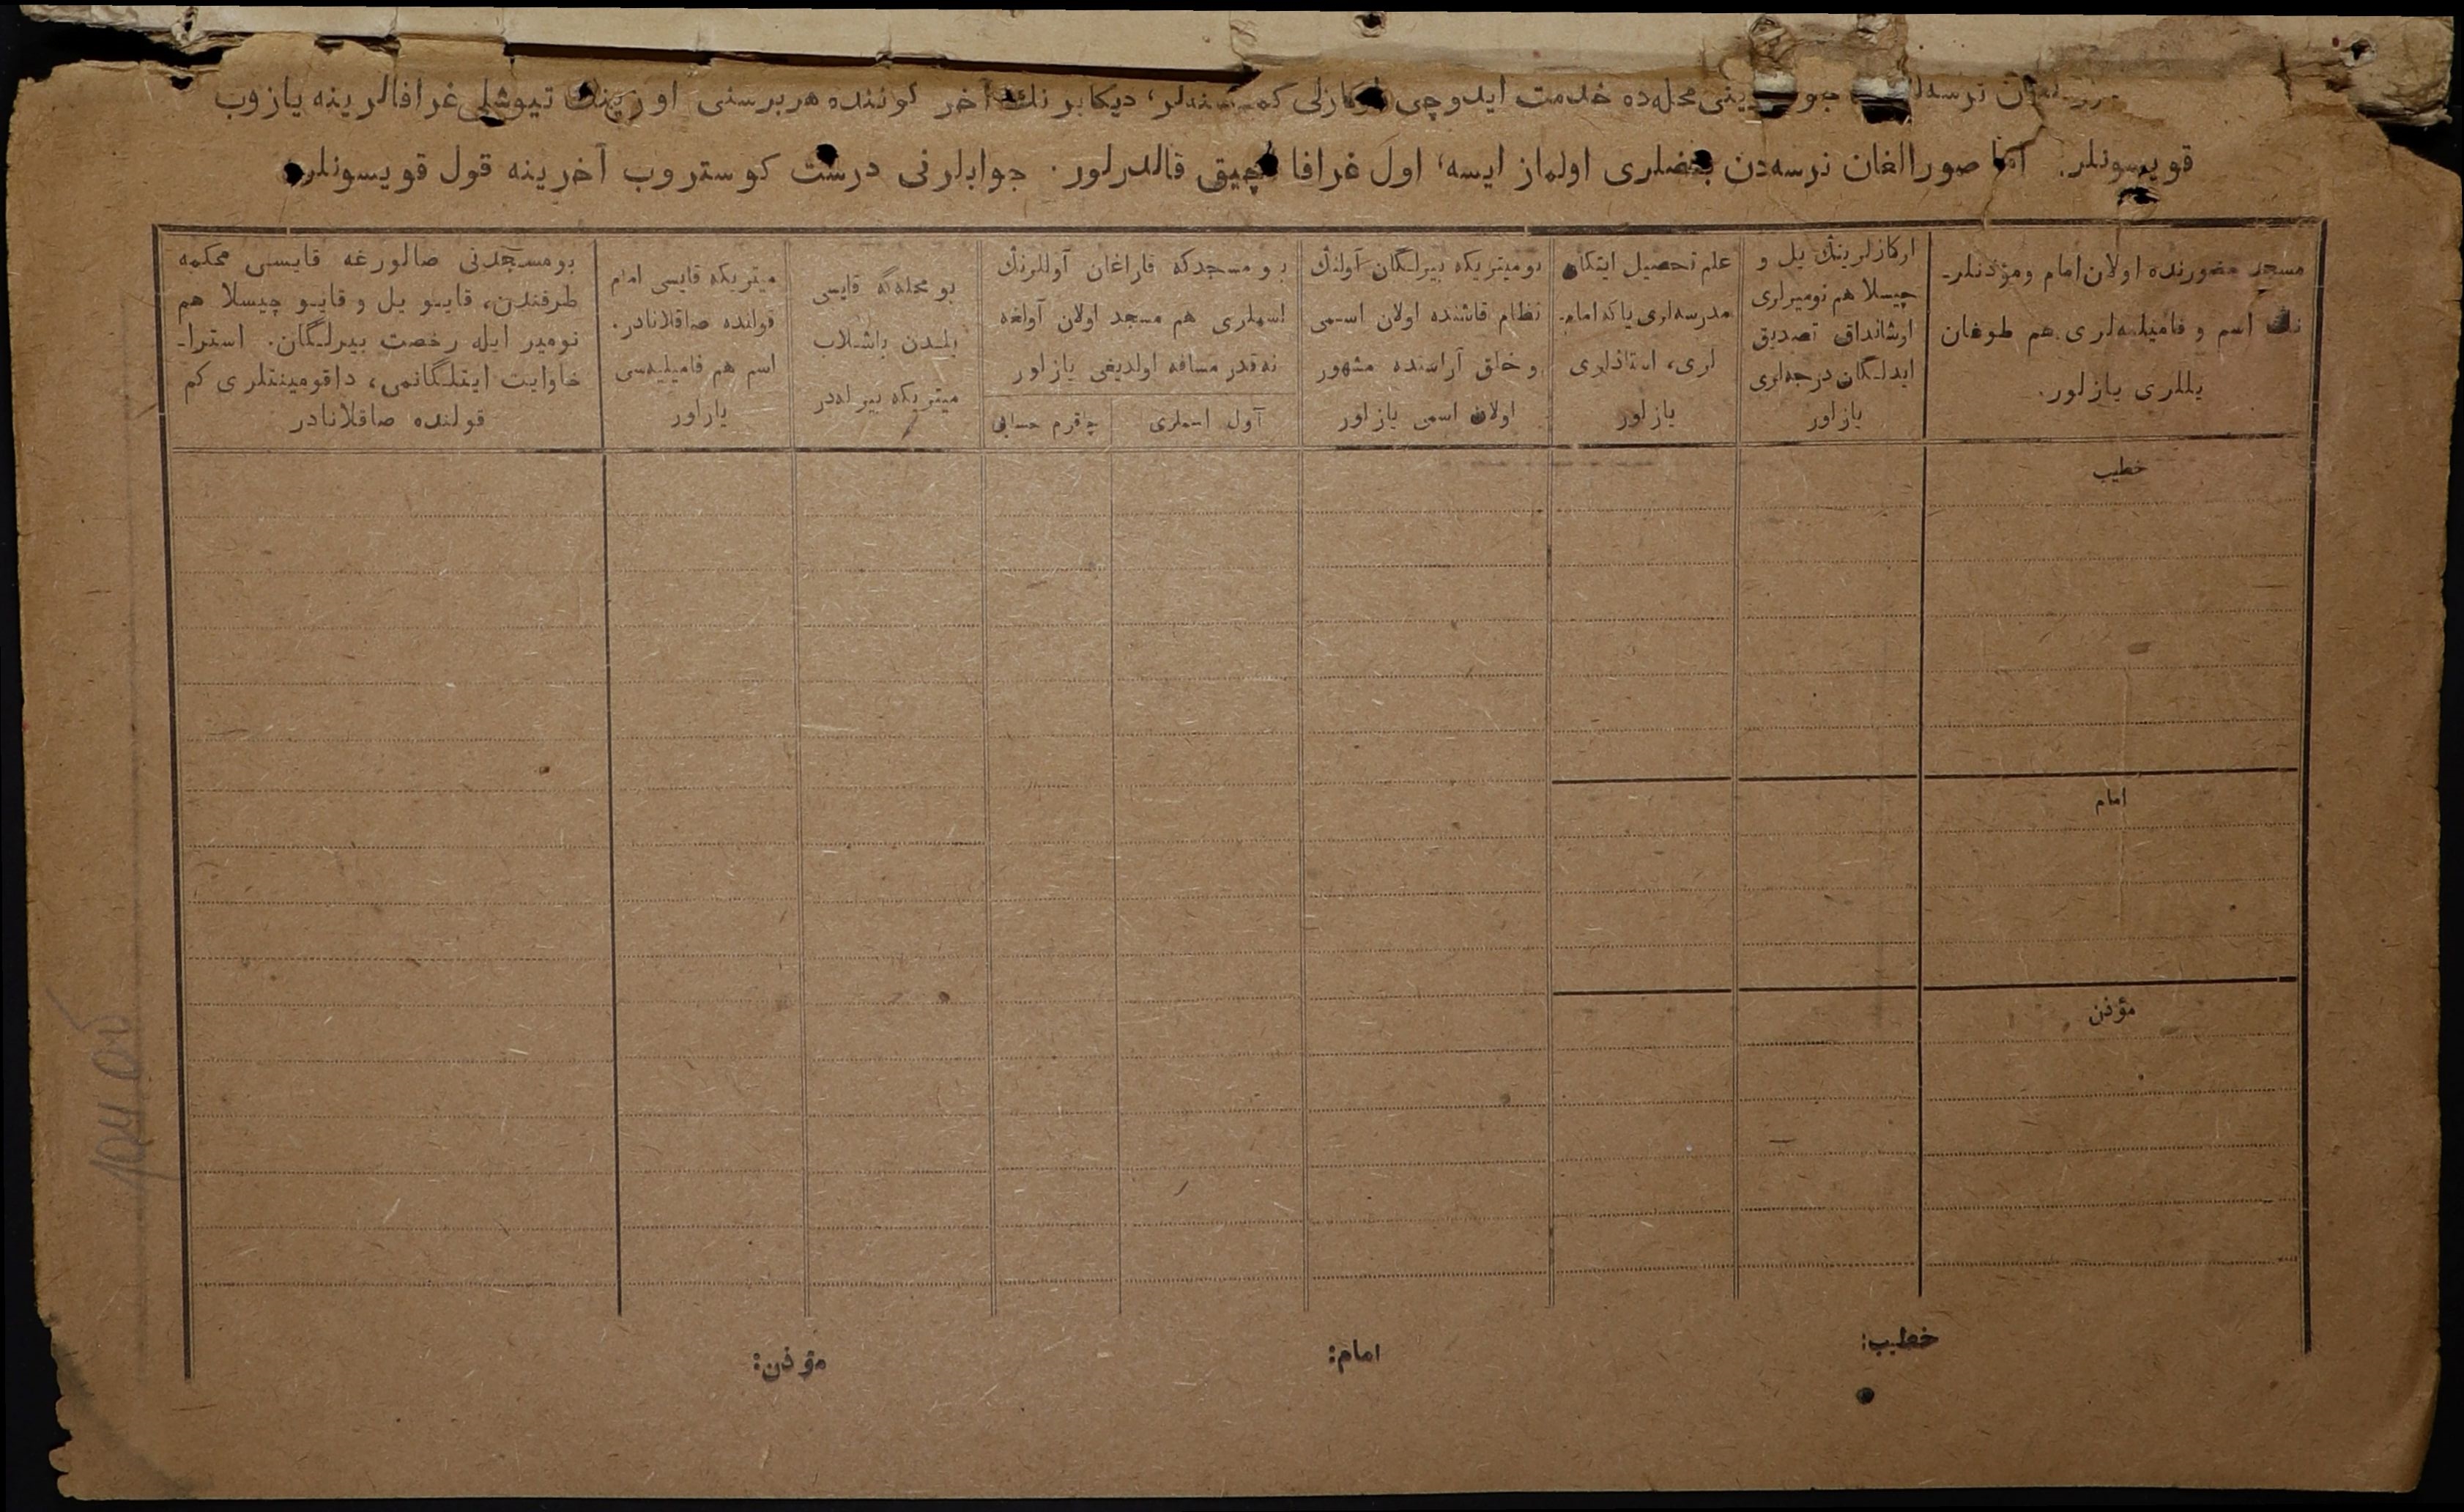 نرسه‌لر محله‌ده خدمت ایدوچی اوکازلی کمسنه‌لر، دیکابر نڭ آخر کوننده هر برسنی اوزینڭ تیوشلی غرافالرینه یازوب
قویسونلر. اما صورالغان نرسه‌دن بعضلری اولماز ایسه، اول غرافا آچیق قالدرلور. جوابلرنی درست کوستروب آخرینه قول قویسونلر.
مسجد حضورنده اولان امام ومؤذنلر-
نڭ اسم و فامیلیه‌لری هم طوغان
یللری یازلور.
اوکازلرینڭ یل و
چیسلا هم نومیرلری
اوشانداق تصدیق
ایدلگان درجه‌لری
یازلور
علم تحصیل ایتکان
مدرسه‌لری یاکه امام-
لری، استاذلری
یازلور
بو میتریکه بیرلگان آولنڭ
نظام قاشنده اولان اسمی
و خلق آراسنده مشهور
اولان اسمی یازلور
بو مسجدکه قاراغان آوللرنڭ
اسملری هم مسجد اولان آولغه
نه قدر مسافه اولدیغی یازلور
آول اسملری
چاقرم حسابی
بو محله‌گه قایسی
یلدن باشلاب
میتریکه بیرله‌در
میتریکه قایسی امام
قولنده صاقلانادر.
اسم هم فامیلیه‌سی
یازلور
بو مسجدنی صالورغه قایسی محکمه
طرفندن، قایو یل و قایو چیسلا هم
نومیر ایله رخصت بیرلگان. استرا-
خاوایت ایتلگانمی، داقومینتلری کم
قولنده صاقلانادر
خطیب
امام
مؤذن
خطیب:
امام:
مؤذن: